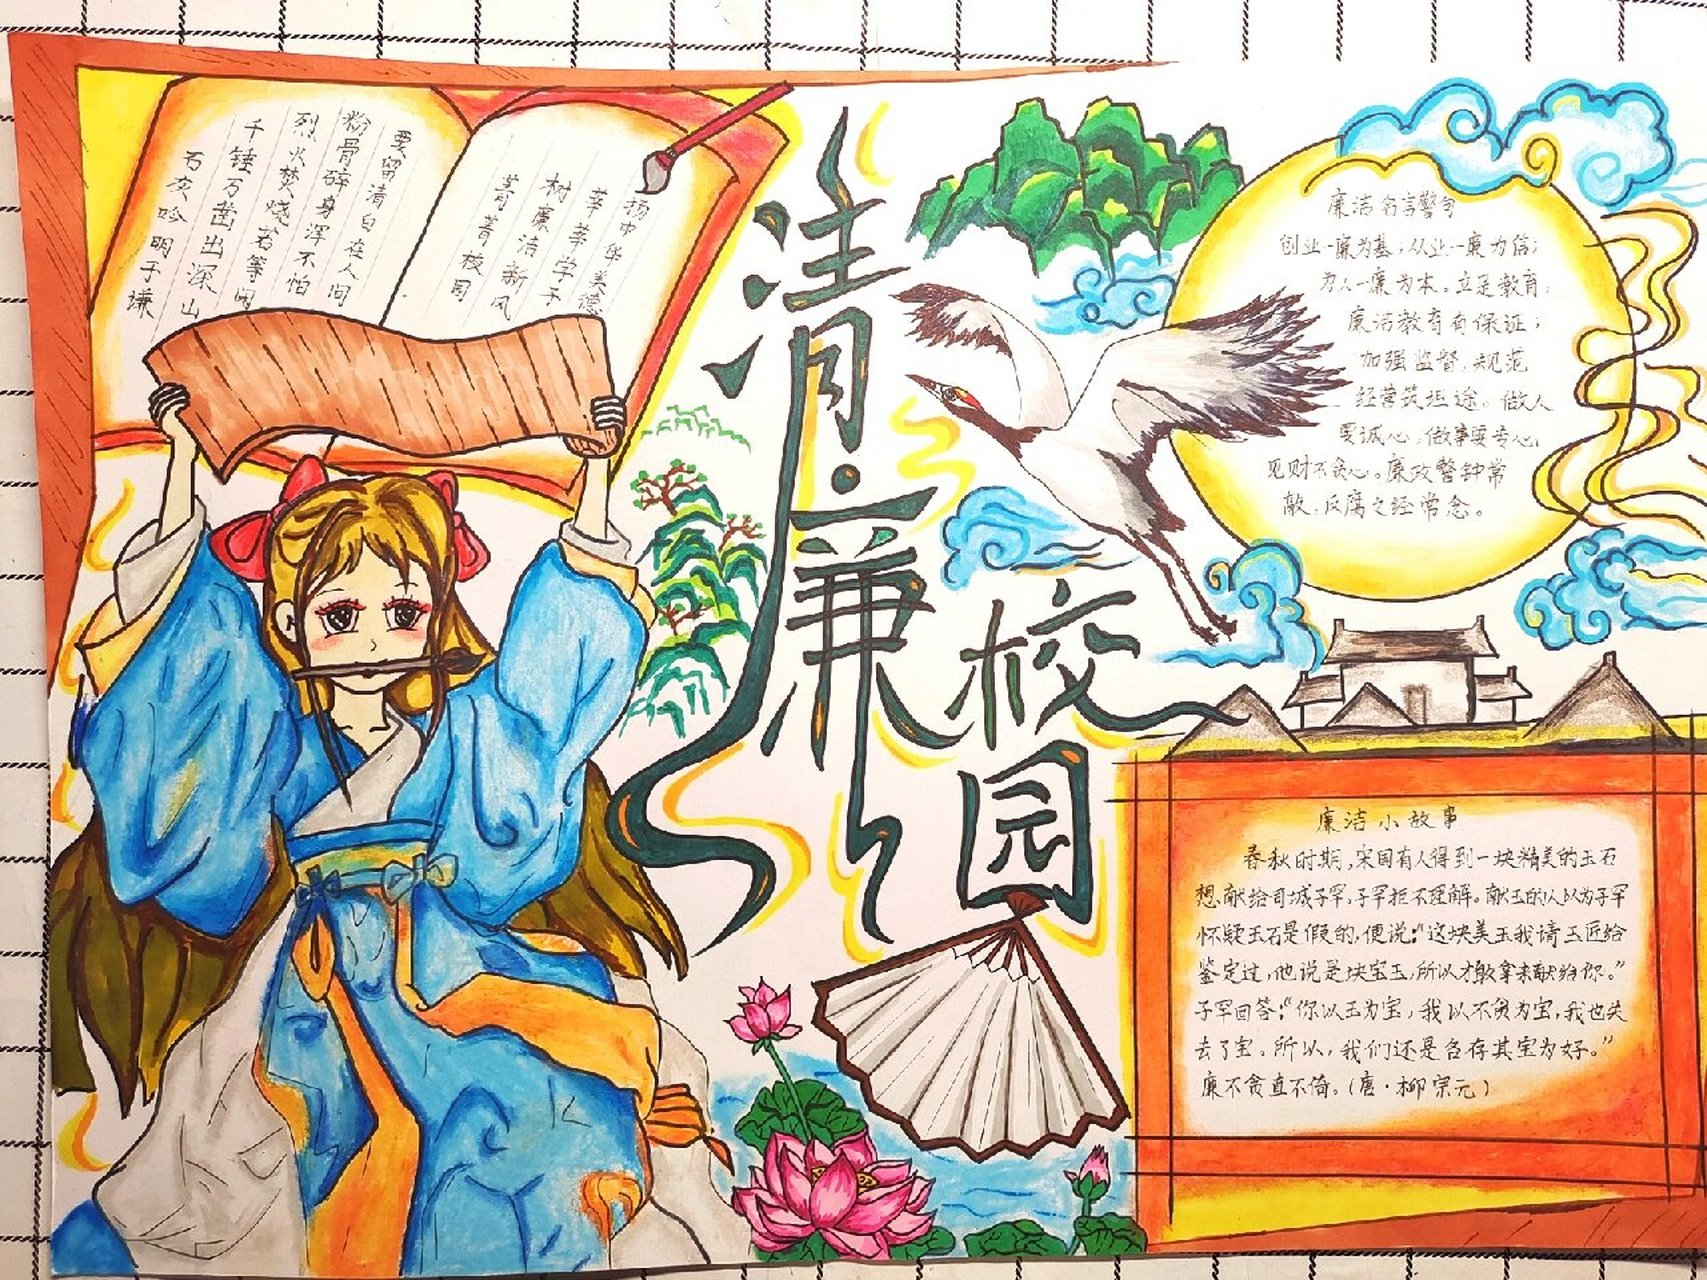 石灰吟 明 于谦
千锤万凿出深山
烈火焚烧若等闲
粉骨碎身浑不怕
要留清白在人间
扬中华美德
莘莘学子
树廉洁新风
菁菁校园
清廉
校园
廉洁名言警句
创业一廉为基;从业一廉为信;
为人一廉为本。立足教育;
廉洁教育有保证;
加强监督,规范
经营筑坦途。做人
要诚心,做事要专心,
见财不贪心。廉政警钟常
敲,反腐之经常念。
廉洁小故事
春秋时期,宋国有人得到一块精美的玉石
想献给司城子罕,子罕拒不理解。献玉的人以为子罕
怀疑玉石是假的,便说:“这块美玉我请玉匠给
鉴定过,他说是块宝玉,所以才敢拿来献给你。”
子罕回答:“你以玉为宝,我以不贪为宝,我也失
去了宝。所以,我们还是各存其宝为好。”
廉不贪直不倚。(唐·柳宗元)